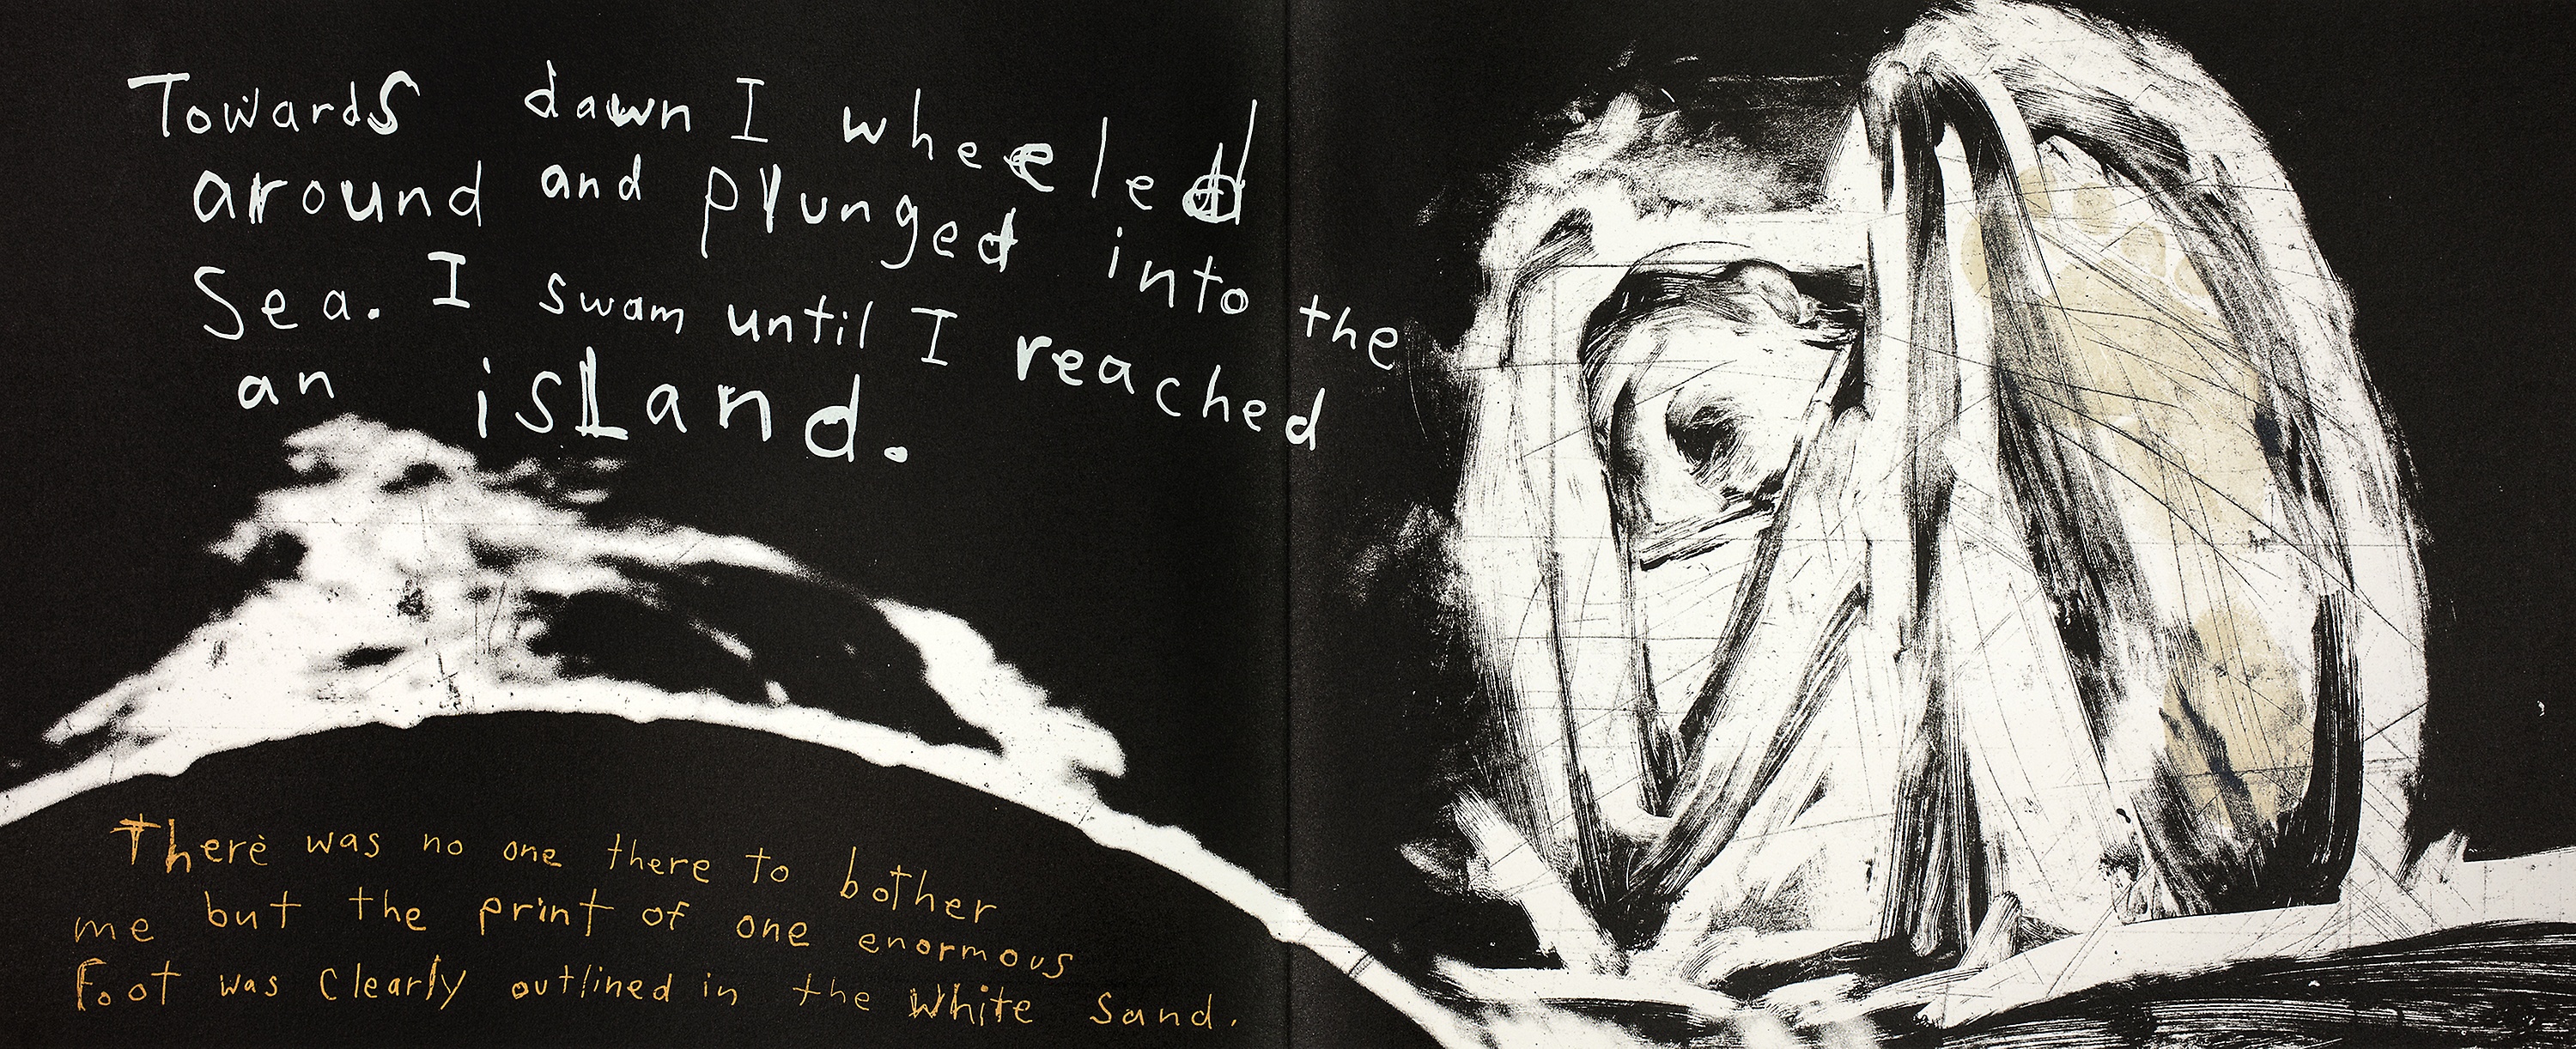 Towards dawn I wheeled
around and plunged into the
Sea. I swam until I reached
an isLand.
There was no one there to bother
me but the print of one enormous
foot was clearly outlined in the white sand.